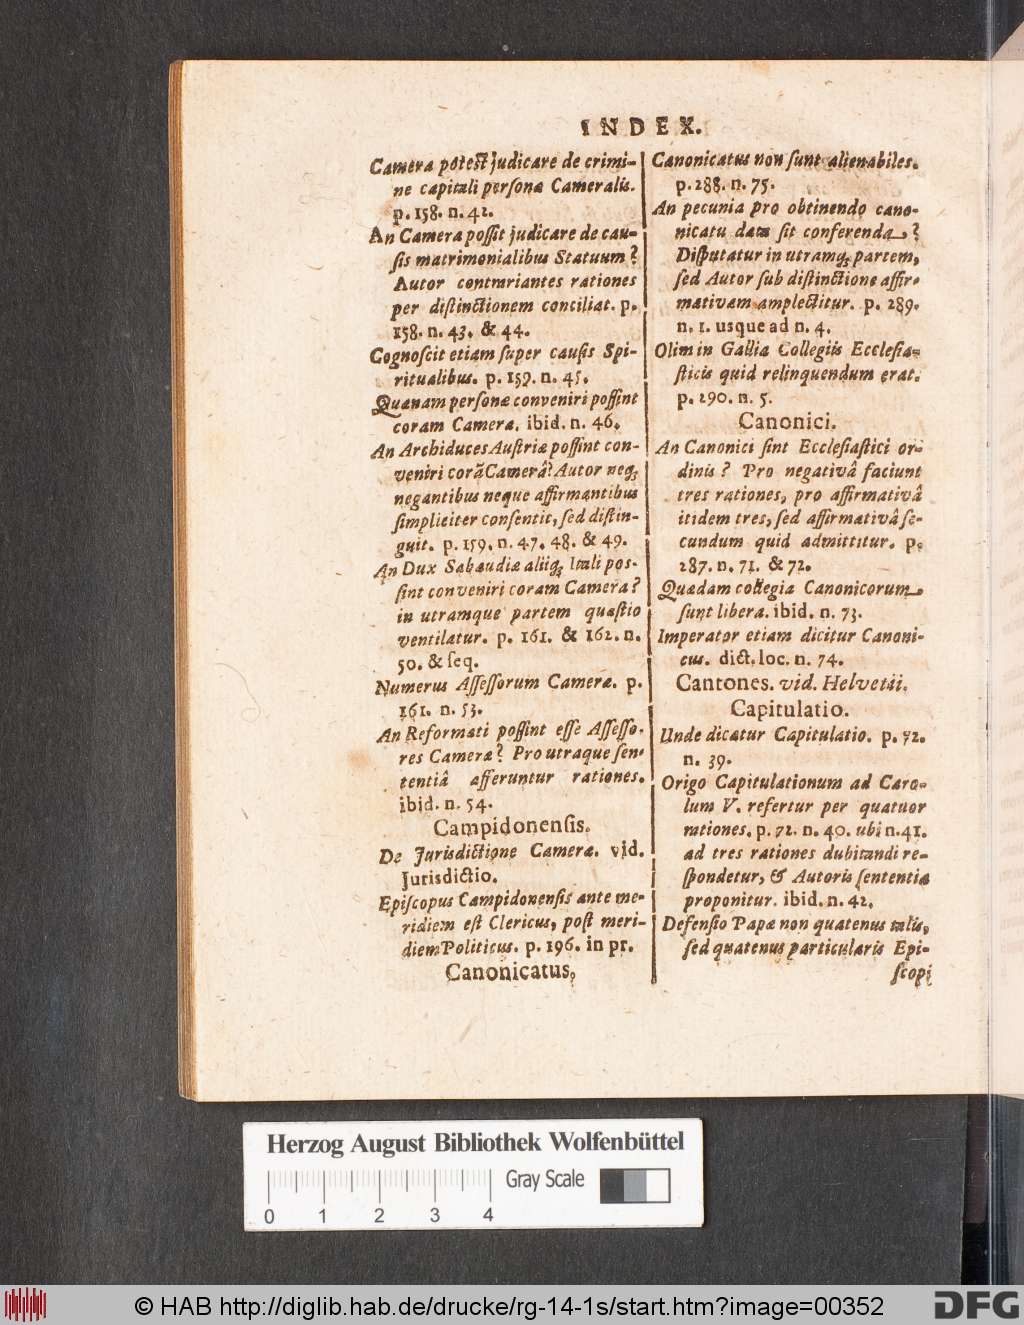 INDEX.
Camera potest judicare de crimi-
ne capitali personæ Cameralis.
p. 158. n. 42.
An Camera poſſit judicare de cau-
ſis matrimonialibus Statuum?
Autor contrariantes rationes
per diſtinctionem conciliat. p.
158. n. 43. & 44.
Cognoſcit etiam ſuper cauſis Spi-
ritualibus. p. 159. n. 45.
Quænam perſonæ conveniri poſſint
coram Camera. ibid. n. 46.
An Archiduces Auſtriæ poſſint con-
veniri corã Camerâ? Autor neq;
negantibus neque affirmantibus
ſimpliciter conſentit, ſed diſtin-
guit. p. 159. n. 47. 48. & 49.
An Dux Sabaudiæ aliiq; Itali poſ-
ſint conveniri coram Camera?
in utramque partem quæſtio
ventilatur. p. 161. & 162. n.
50. & ſeq.
Numerus Aſſeſſorum Cameræ. p.
161. n. 53.
An Reformati poſſint eſſe Aſſeſſo-
res Cameræ? Pro utraque ſen-
tentiâ afferuntur rationes.
ibid. n. 54.
Campidonenſis.
De Jurisdictione Cameræ. vid.
Jurisdictio.
Epiſcopus Campidonenſis ante me-
ridiem eſt Clericus, poſt meri-
diem Politicus. p. 196. in pr.
Canonicatus,
Canonicatus non ſunt alienabiles.
p. 288. n. 75.
An pecunia pro obtinendo cano-
nicatu data ſit conferenda?
Diſputatur in utramq; partem,
ſed Autor ſub diſtinctione affir-
mativam amplectitur. p. 289.
n. 1. usque ad n. 4.
Olim in Gallia Collegiis Eccleſia-
ſticis quid relinquendum erat.
p. 290. n. 5.
Canonici.
An Canonici ſint Eccleſiaſtici or-
dinis? Pro negativâ faciunt
tres rationes, pro affirmativâ
itidem tres, ſed affirmativâ ſe-
cundum quid admittitur. p.
287. n. 71. & 72.
Quædam collegia Canonicorum
ſunt libera. ibid. n. 73.
Imperator etiam dicitur Canoni-
cus. dict. loc. n. 74.
Cantones. vid. Helvetii.
Capitulatio.
Unde dicatur Capitulatio. p. 72.
n. 39.
Origo Capitulationum ad Caro-
lum V. refertur per quatuor
rationes. p. 72. n. 40. ubi n. 41.
ad tres rationes dubitandi re-
ſpondetur, & Autoris ſententia
proponitur. ibid. n. 42.
Defenſio Papæ non quatenus talis,
ſed quatenus particularis Epi-
ſcopi
Herzog August Bibliothek Wolfenbüttel
Gray Scale
0 1 2 3 4
© HAB http://diglib.hab.de/drucke/rg-14-1s/start.htm?image=00352
DFG